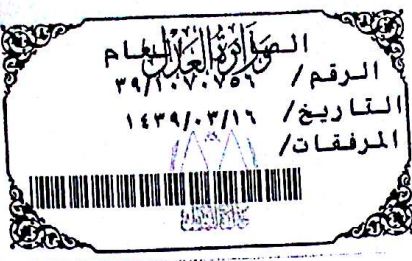 وزارة العدل
الصادر العام
الرقم / ٣٩/١٠٧٠٧٥٦
التاريخ / ١٤٣٩/٠٣/١٦
المرفقات /